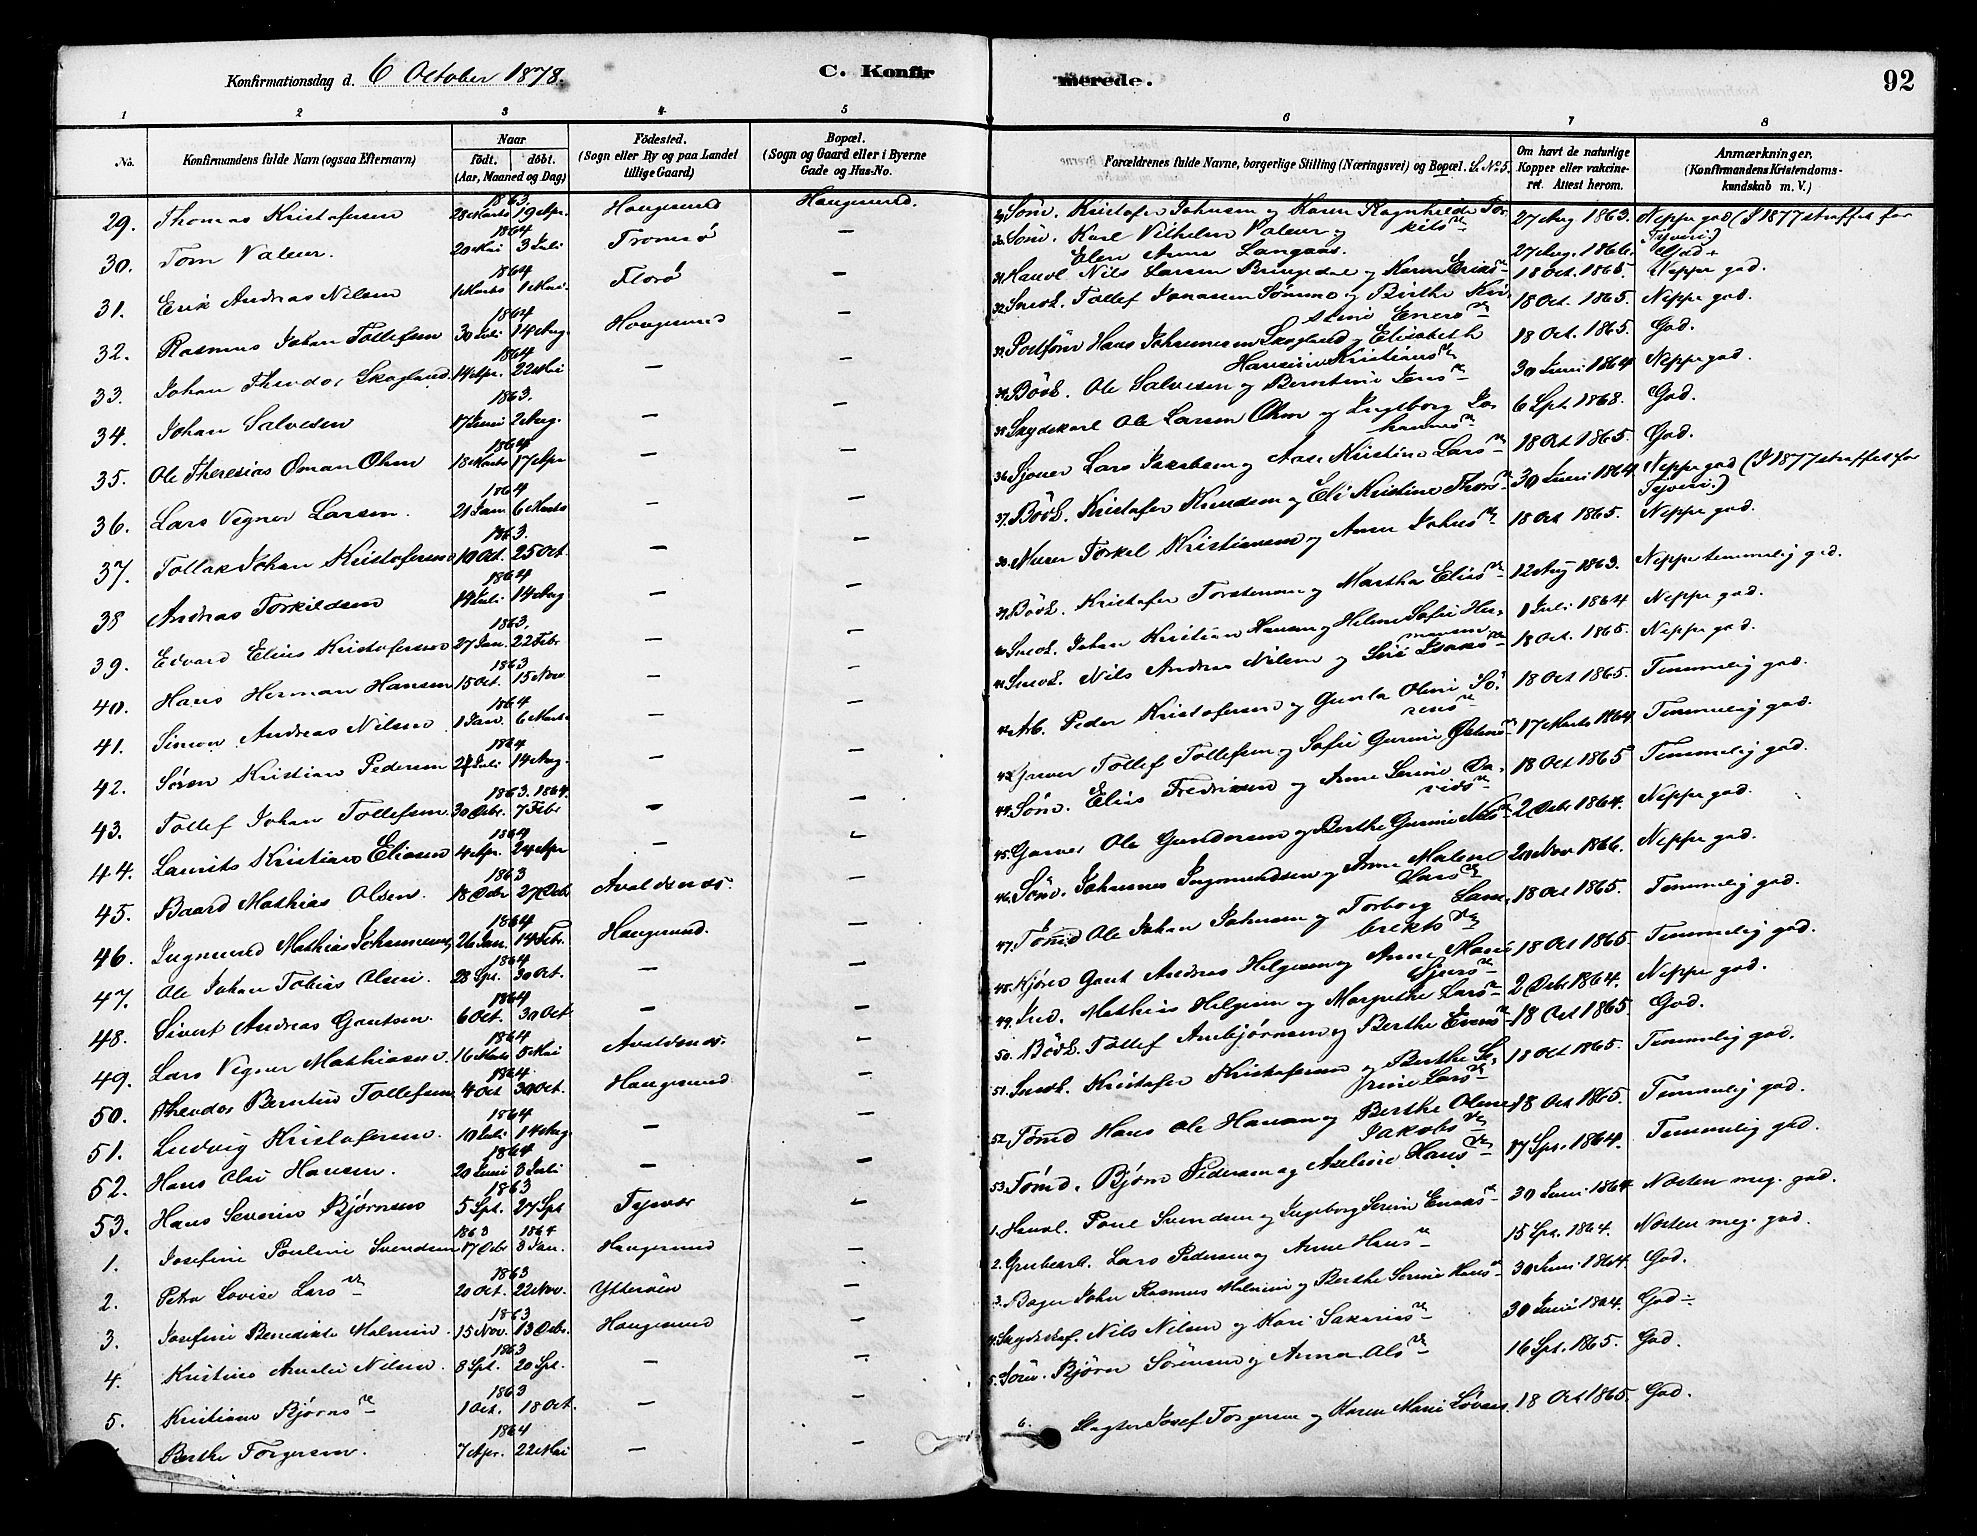 Konfirmationsdag d. 6 October 1878.
C. Konfir
merede.
92
1 2 3 4 5 6 7 8
No.
Konfirmandens fulde Navn (ogsaa Efternavn)
Naar
födt. döbt.
(Aar, Maaned og Dag)
Födested.
(Sogn eller By og paa Landet
tillige Gaard)
Bopæl.
(Sogn og Gaard eller i Byerne
Gade og Hus-No.
Forældrenes fulde Navne, borgerlige Stilling (Næringsvei) og Bopæl. S. No 5.
Om havt de naturlige
Kopper eller vakcine-
ret. Attest herom.
Anmærkninger.
(Konfirmandens Kristendoms-
kundskab m. V.)
29. Thomas Kristofersen 1863. 28 Marts 19 Apr. Haugesund Haugesund. Kristofer Johnsen og Karen Ragnhilde Tor- 27 Aug 1863. Neppe god (I 1877 straffet for
Tyveri.)
30. Tom Valeur. 1864 20 Mai 3 Juli Tromsø — Karl Vilhelm Valeur og
Elen Anna Langaas. 27 Aug. 1866.
31. Erik Andreas Nilsen 1864 1 Marts 1 Mai Florø — Nils Larsen Bringedal og Karen Eriks 18 Oct. 1865. Neppe god.
32. Rasmus Johan Tollefsen 1864 30 Juli 14 Aug. Haugesund — Snedk. Tollef Jonassen Sømme og Birthe Kri-
stine Eners 18 Oct. 1865. Neppe god.
33. Johan Theodor Skogland 1864 14 Apr. 22 Mai — — Hans Johannessen Skogland og Elisabeth
Hansine Kristians 18 Oct. 1865. God.
34. Johan Salvesen 1863. 17 Juni 2 Aug. — — Bødk. Ole Salvesen og Berntine Jens 30 Juni 1864 Neppe god.
35. Ole Theresius Oman Ohm 1864 18 Marts 17 Apr — — Skydskarl Ole Larsen Ohm og Ingeborg Jo-
hannes 6 Spt. 1868. God.
36. Lars Vegner Larsen. 1864 21 Jan 6 Marts — — Lars Jakobsen og Aase Kristine Lars 18 Oct 1865. God.
37. Tollak Johan Kristofersen 1863. 10 Oct. 25 Oct — — Bødk. Kristofer Knudsen og Eli Kristine Thors 30 Juni 1864 Neppe god (I 1877 straffet for
Tyveri.)
38 Andreas Torkildsen 1864 14 Juli 14 Aug — — Murer Torkel Kristiansen og Anne Johns 18 Oct 1865. Neppe god.
39. Edvard Elius Kristofersen 1863. 27 Jan. 22 Febr — — Bødk. Kristofer Torstensen og Martha Elias 12 Aug 1863. Neppe temmelig god.
40. Hans Herman Hansen 1863 15 Oct. 15 Nov — — Snedk. Johan Kristian Hansen og Helene Sofie Her-
mansen 1 Juli 1864 Neppe god.
41. Simon Andreas Nilsen 1864 1 Jan. 6 Marts — — Snedk. Nils Andreas Nilsen og Siri Isaks 18 Oct. 1865. Neppe god.
42. Søren Kristian Pedersen 1864 24 Juli 14 Aug. — — Arb. Peder Kristofersen og Gunla Oline Sø-
rens 18 Oct 1865. Temmelig god.
43. Tollef Johan Tollefsen 1863. 1864. 30 Decbr. 7 Febr — — Tollef Tollefsen og Sofie Gurine Østens 17 Marts 1864. Temmelig god.
44. Laurits Kristian Eliasen 1864 4 Apr. 24 Apr — — Elias Fredriksen og Anne Serine Da-
vids 18 Oct 1865 Temmelig god.
45. Baard Mathias Olsen. 1863 18 Decbr 27 Decb Avaldsnes. — Garver Ole Gundersen og Berthe Gurine Nils 2 Decbr 1864. Neppe god.
46. Ingmund Mathias Johannesen 1864 26 Jan. 14 Febr. Haugesund. — Johannes Ingmundsen og Anne Malene
Lars 20 Nov 1866. Neppe god.
47. Ole Johan Tobias Olsen. 1864 28 Spt. 30 Oct. — — Tømd Ole Johan Johnsen og Torborg Lam-
brekts 18 Oct 1865. Temmelig god.
48. Sivert Andreas Gautsen. 1864 6 Oct. 30 Oct — — Gaut Andreas Helgesen og Anne Mari
Sjurs 18 Oct 1865. Temmelig god.
49. Lars Vegner Mathiasen. 1864 16 Marts 5 Mai Avaldsnes. — Mathias Helgesen og Margrethe Lars 2 Decbr 1864. Neppe god.
50. Theodor Berntin Tollefsen 1864 4 Oct 30 Oct. Haugesund — Bødk. Tollef Arnbjørnsen og Berthe Eners 18 Oct 1865. God.
51. Ludvig Kristofersen. 1864 10 Juli 14 Aug. — — Snedk. Kristofer Kristofersen og Berthe Se-
rine Lars 18 Oct 1865. Temmelig god.
52. Hans Olai Hansen. 1864 20 Juni 3 Juli — — Tømd Hans Ole Hansen og Berthe Olene
Jakobs 18 Oct 1865. Temmelig god.
53. Hans Severin Bjørnsen 1863 5 Spt. 27 Spt Tysvær — Tømd. Bjørn Pedersen og Axeline Hans 17 Spt. 1864. Temmelig god.
1. Josefine Pauline Svendsen 1863 1864 17 Decbr 3 Jan. Haugesund — Paul Svendsen og Ingeborg Serine Enoks 30 Juni 1864 Næsten meg. god.
2. Petra Lovise Lars 1863 20 Oct. 22 Nov. Ytterøen — Lars Pedersen og Anne Hans 15 Spt. 1864. Næsten meg. god.
3. Josefine Benedikte Malmin. 1863 15 Nov. 13 Decbr. Haugesund — Bager John Rasmus Malmin og Berthe Serine Hans 30 Juni 1864. God.
4. Kristine Amalie Nilsen. 1863 8 Spt. 20 Spt. — — Nils Nilsen og Kari Sakarias 30 Juni 1864. God
5. Kristiane Bjørns 1863 1 Oct. 18 Oct. — — Bjørn Sørensen og Anna Ols 16 Spt. 1865. God.
Berthe Torgersen. 1864 7 Apr. 22 Mai — — 6. Slagter Josef Torgersen og Karen Marie Løvaas. 18 Oct 1865. God.